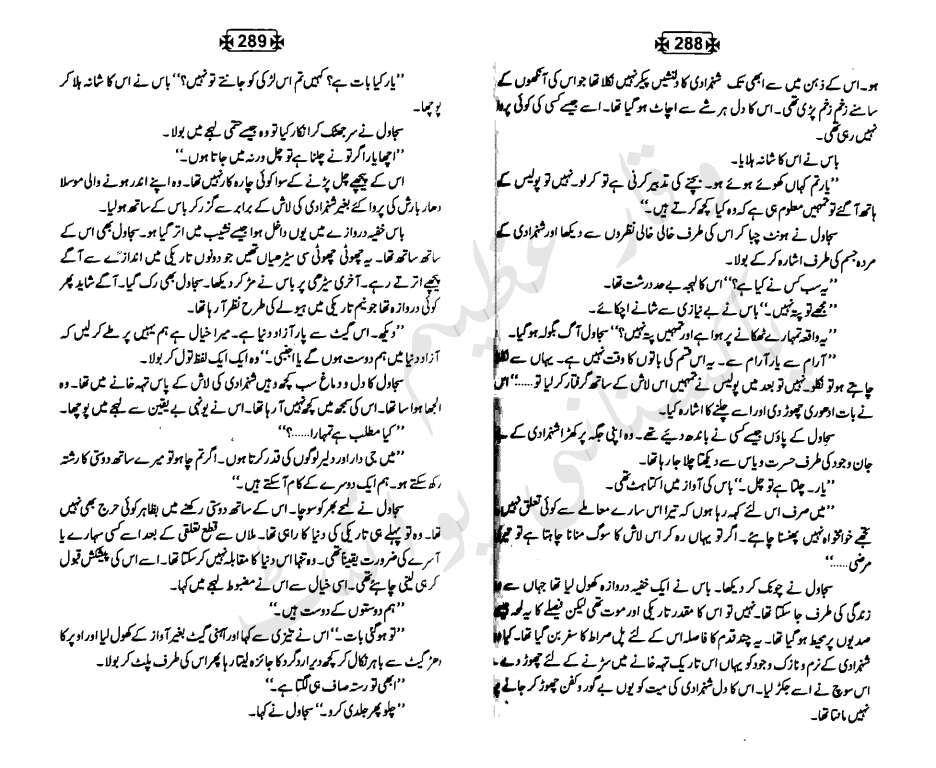 288
ہو۔ اس کے ذہن میں سے ابھی تک شہزادی کا دلنشیں پیکر نہیں نکلا تھا جو اس کی آنکھوں کے
سامنے زخم زخم پڑی تھی۔ اس کا دل ہر شے سے اچاٹ ہو گیا تھا۔ اسے جیسے کسی کی کوئی پروا
نہیں رہی تھی۔
باس نے اس کا شانہ ہلایا۔
”یار تم کہاں کھوئے ہوئے ہو۔ بچنے کی تدبیر کرنی ہے تو کر لو۔ نہیں تو پولیس کے
ہاتھ آ گئے تو تمہیں معلوم ہی ہے کہ وہ کیا کچھ کرتے ہیں۔“
سجاول نے ہونٹ چبا کر اس کی طرف خالی خالی نظروں سے دیکھا اور شہزادی کے
مردہ جسم کی طرف اشارہ کر کے بولا۔
”یہ سب کس نے کیا ہے؟“ اس کا لہجہ بے حد درشت تھا۔
”مجھے تو پتہ نہیں۔“ باس نے بے نیازی سے شانے اچکائے۔
”یہ واقعہ تمہارے ٹھکانے پر ہوا ہے اور تمہیں پتہ نہیں؟“ سجاول آگ بگولہ ہو گیا۔
”آرام سے یار آرام سے۔ یہ اس قسم کی باتوں کا وقت نہیں ہے۔ یہاں سے نکلنا
چاہتے ہو تو نکلو۔ نہیں تو بعد میں پولیس نے تمہیں اس لاش کے ساتھ گرفتار کر لیا تو……“ اس
نے بات ادھوری چھوڑ دی اور اسے چلنے کا اشارہ کیا۔
سجاول کے پاؤں جیسے کسی نے باندھ دیئے تھے۔ وہ اپنی جگہ پر کھڑا شہزادی کے بے
جان وجود کی طرف حسرت و یاس سے دیکھتا چلا جا رہا تھا۔
”یار۔ چلنا ہے تو چل۔“ باس کی آواز میں اکتاہٹ تھی۔
”میں صرف اس لئے کہہ رہا ہوں کہ تیرا اس سارے معاملے سے کوئی تعلق نہیں
تجھے خوامخواہ نہیں پھنسنا چاہئے۔ اگر تو یہاں رہ کر اس لاش کا سوگ منانا چاہتا ہے تو تیری
مرضی……“
سجاول نے چونک کر دیکھا۔ باس نے ایک خفیہ دروازہ کھول لیا تھا جہاں سے وہ
زندگی کی طرف جا سکتا تھا۔ نہیں تو اس کا مقدر تاریکی اور موت تھی لیکن فیصلے کا یہ لمحہ جیسے
صدیوں پر محیط ہو گیا تھا۔ یہ چند قدم کا فاصلہ اس کے لئے پل صراط کا سفر بن گیا تھا۔ کیا وہ
شہزادی کے نرم و نازک وجود کو یہاں اس تاریک تہہ خانے میں سڑنے کے لئے چھوڑ دے۔
اس سوچ نے اسے جکڑ لیا۔ اس کا دل شہزادی کی میت کو یوں بے گور و کفن چھوڑ کر جانے پر
نہیں مانتا تھا۔
289
”یار کیا بات ہے؟ کہیں تم اس لڑکی کو جانتے تو نہیں؟“ باس نے اس کا شانہ ہلا کر
پوچھا۔
سجاول نے سر جھٹک کر انکار کیا تو وہ جیسے حتمی لہجے میں بولا۔
”اچھا یار اگر تو نے چلنا ہے تو چل ورنہ میں جاتا ہوں۔“
اس کے پیچھے چل پڑنے کے سوا کوئی چارہ کار نہیں تھا۔ وہ اپنے اندر ہونے والی موسلا
دھار بارش کی پروا کئے بغیر شہزادی کی لاش کے برابر سے گزر کر باس کے ساتھ ہو لیا۔
باس خفیہ دروازے میں یوں داخل ہوا جیسے نشیب میں اتر گیا ہو۔ سجاول بھی اس کے
ساتھ ساتھ تھا۔ یہ چھوٹی چھوٹی سی سیڑھیاں تھیں جو دونوں تاریکی میں اندازے سے آگے
پیچھے اترتے رہے۔ آخری سیڑھی پر باس نے مڑ کر دیکھا۔ سجاول بھی رک گیا۔ آگے شاید پھر
کوئی دروازہ تھا جو نیم تاریکی میں ہیولے کی طرح نظر آ رہا تھا۔
”دیکھ۔ اس گیٹ سے پار آزاد دنیا ہے۔ میرا خیال ہے ہم یہیں پر طے کر لیں کہ
آزاد دنیا میں ہم دوست ہوں گے یا اجنبی۔“ وہ ایک ایک لفظ تول کر بولا۔
سجاول کا دل و دماغ سب کچھ وہیں شہزادی کی لاش کے پاس تہہ خانے میں تھا۔ وہ
الجھا ہوا سا تھا۔ اس کی سمجھ میں کچھ نہیں آ رہا تھا۔ اس نے یونہی بے یقین سے لہجے میں پوچھا۔
”کیا مطلب ہے تمہارا……؟“
”میں جی دار اور دلیر لوگوں کی قدر کرتا ہوں۔ اگر تم چاہو تو میرے ساتھ دوستی کا رشتہ
رکھ سکتے ہو۔ ہم ایک دوسرے کے کام آ سکتے ہیں۔“
سجاول نے لمحے بھر کو سوچا۔ اس کے ساتھ دوستی رکھنے میں بظاہر کوئی حرج بھی نہیں
تھا۔ وہ تو پہلے ہی تاریکی کی دنیا کا راہی تھا۔ ملاں سے قطع تعلقی کے بعد اسے کسی سہارے یا
آسرے کی ضرورت یقیناً تھی۔ وہ تنہا اس دنیا کا مقابلہ نہیں کر سکتا تھا۔ اسے اس کی پیشکش قبول
کر ہی لینی چاہئے تھی۔ اسی خیال سے اس نے مضبوط لہجے میں کہا۔
”ہم دوستوں کے دوست ہیں۔“
”تو ہو گئی بات۔“ اس نے تیزی سے کہا اور آہنی گیٹ بغیر آواز کے کھول لیا اور اوپر کا
دھڑ گیٹ سے باہر نکال کر کچھ دیر ارد گرد کا جائزہ لیتا رہا پھر اس کی طرف پلٹ کر بولا۔
”ابھی تو رستہ صاف ہی لگتا ہے۔“
”چلو پھر جلدی کرو۔“ سجاول نے کہا۔
وقار عظیم
پاکستانی پوائنٹ